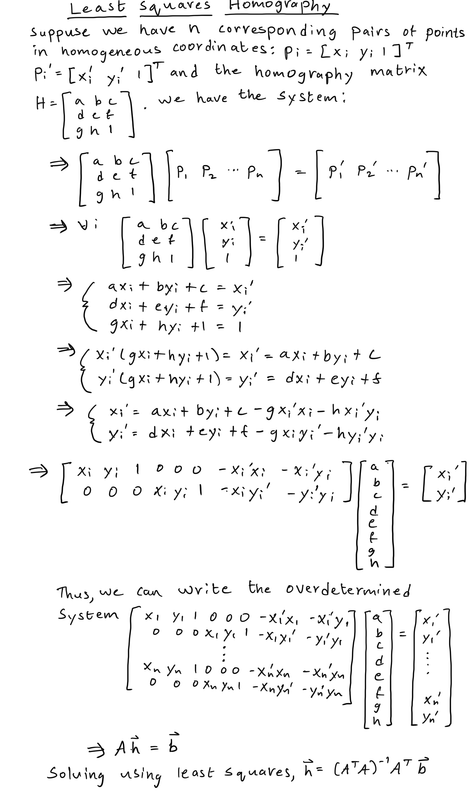 Least Squares Homography
Suppuse we have n corresponding pairs of points
in homogeneous coordinates: pᵢ = [xᵢ yᵢ 1]ᵀ
pᵢ' = [xᵢ' yᵢ' 1]ᵀ and the homography matrix
H = [a b c; d e f; g h 1]. we have the system:
⇒ [a b c; d e f; g h 1] [p₁ p₂ ... pₙ] = [p₁' p₂' ... pₙ']
⇒ ∀i [a b c; d e f; g h 1] [xᵢ; yᵢ; 1] = [xᵢ'; yᵢ'; 1]
⇒ { axᵢ + byᵢ + c = xᵢ'
dxᵢ + eyᵢ + f = yᵢ'
gxᵢ + hyᵢ + 1 = 1
⇒ { xᵢ'(gxᵢ + hyᵢ + 1) = xᵢ' = axᵢ + byᵢ + c
yᵢ'(gxᵢ + hyᵢ + 1) = yᵢ' = dxᵢ + eyᵢ + f
⇒ { xᵢ' = axᵢ + byᵢ + c - gxᵢ'xᵢ - hxᵢ'yᵢ
yᵢ' = dxᵢ + eyᵢ + f - gxᵢyᵢ' - hyᵢ'yᵢ
⇒ [xᵢ yᵢ 1 0 0 0 -xᵢ'xᵢ -xᵢ'yᵢ; 0 0 0 xᵢ yᵢ 1 -xᵢyᵢ' -yᵢ'yᵢ] [a; b; c; d; e; f; g; h] = [xᵢ'; yᵢ']
Thus, we can write the overdetermined
System [x₁ y₁ 1 0 0 0 -x₁'x₁ -x₁'y₁; 0 0 0 x₁ y₁ 1 -x₁y₁' -y₁'y₁; ⋮; xₙ yₙ 1 0 0 0 -xₙ'xₙ -xₙ'yₙ; 0 0 0 xₙ yₙ 1 -xₙyₙ' -yₙ'yₙ] [a; b; c; d; e; f; g; h] = [x₁'; y₁'; ⋮; xₙ'; yₙ']
⇒ Ah⃗ = b⃗
Solving using least squares, h⃗ = (AᵀA)⁻¹Aᵀ b⃗